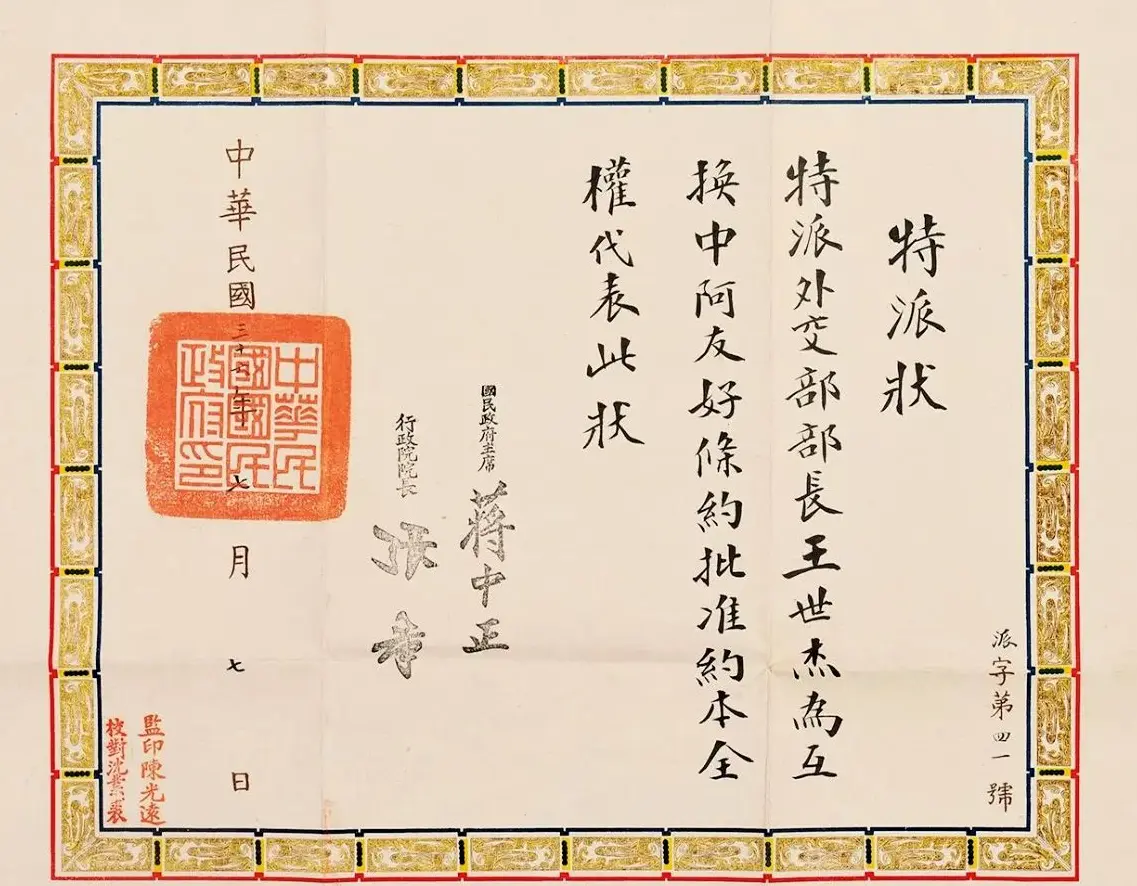 派字第四一號
特派狀
特派外交部部長王世杰為互
換中阿友好條約批准約本全
權代表此狀
國民政府主席 蔣中正
行政院院長 張羣
中華民國三十六年七月七日
中華民
國國民
政府印
監印陳光遠
校對沈